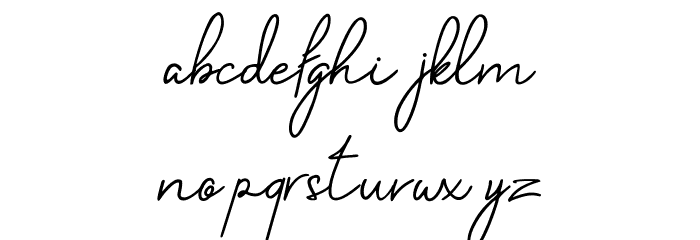 abcdefghi jklm
no pqrsturwx yz